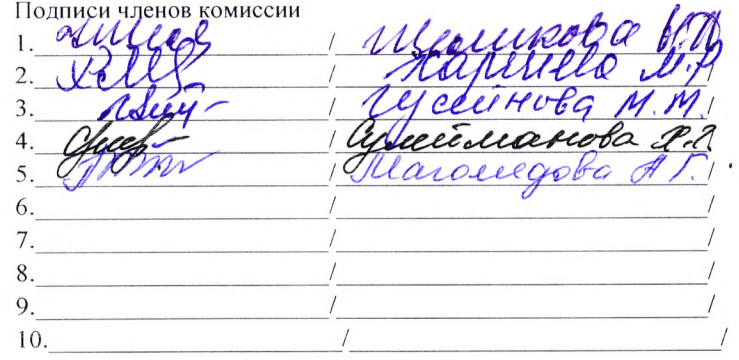 Подписи членов комиссии
1. / Шаликова
2. / М.Р
3. / Гусейнова М.М. /
4. / Сулейманова Х.З.
5. / Магомедова А Г. /
6. / /
7. / /
8. / /
9. / /
10. / /